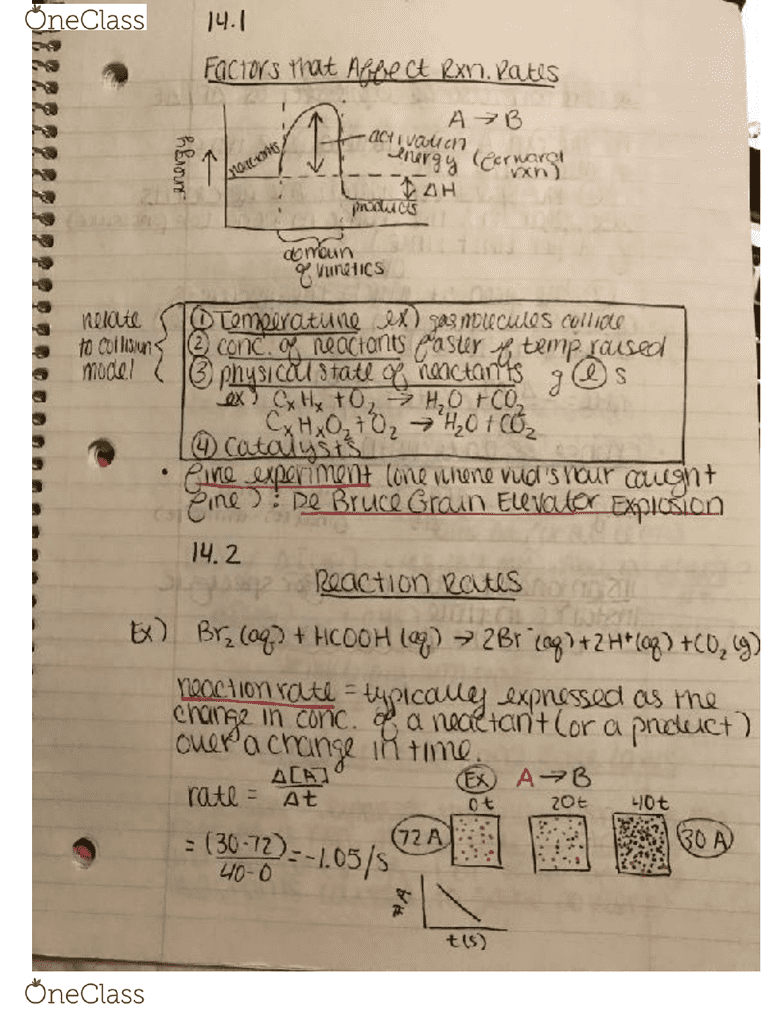 OneClass
14.1
Factors that Affect Rxn. Rates
A → B
reactants
activation
energy (forward
rxn)
ΔH
products
domain
of kinetics
relate
to collision
model
① Temperature ex) gas molecules collide
② conc. of reactants faster if temp raised
③ physical state of reactants g l s
ex) CxHx + O2 → H2O + CO2
CxHxO2 + O2 → H2O + CO2
④ Catalysts
• fire experiment (one where hair caught
fire): De Bruce Grain Elevator Explosion
14.2
Reaction Rates
Ex) Br2 (aq) + HCOOH (aq) → 2Br⁻ (aq) + 2H⁺ (aq) + CO2 (g)
reaction rate = typically expressed as the
change in conc. of a reactant (or a product)
over a change in time.
rate = Δ[A]/Δt
= (30-72)/40-0 = -1.05/s
Ex A → B
0t 20t 40t
72A 30A
#A
t(s)
OneClass